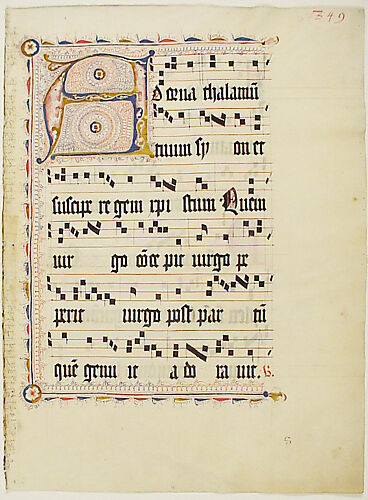 349
Adorna thalamū
tuum sy on et
suscipe re gem xpi stum Quem
uir go cōce pit uirgo pe
perit uirgo post par tū
quē genu it a do ra uit. R.